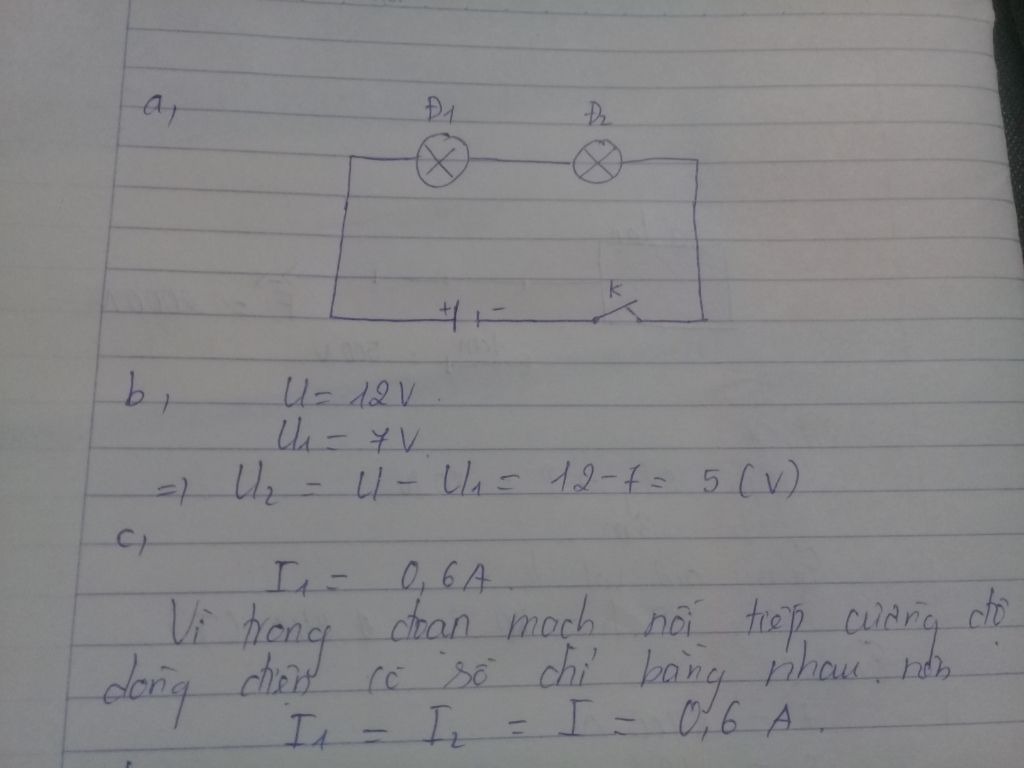 a,
Đ1 Đ2
+ - K
b, U = 12V.
U1 = 7V
=> U2 = U - U1 = 12-7 = 5 (V)
c,
I1 = 0,6A
Vì trong đoạn mạch nối tiếp cường độ
dòng điện có số chỉ bằng nhau nên
I1 = I2 = I = 0,6 A.